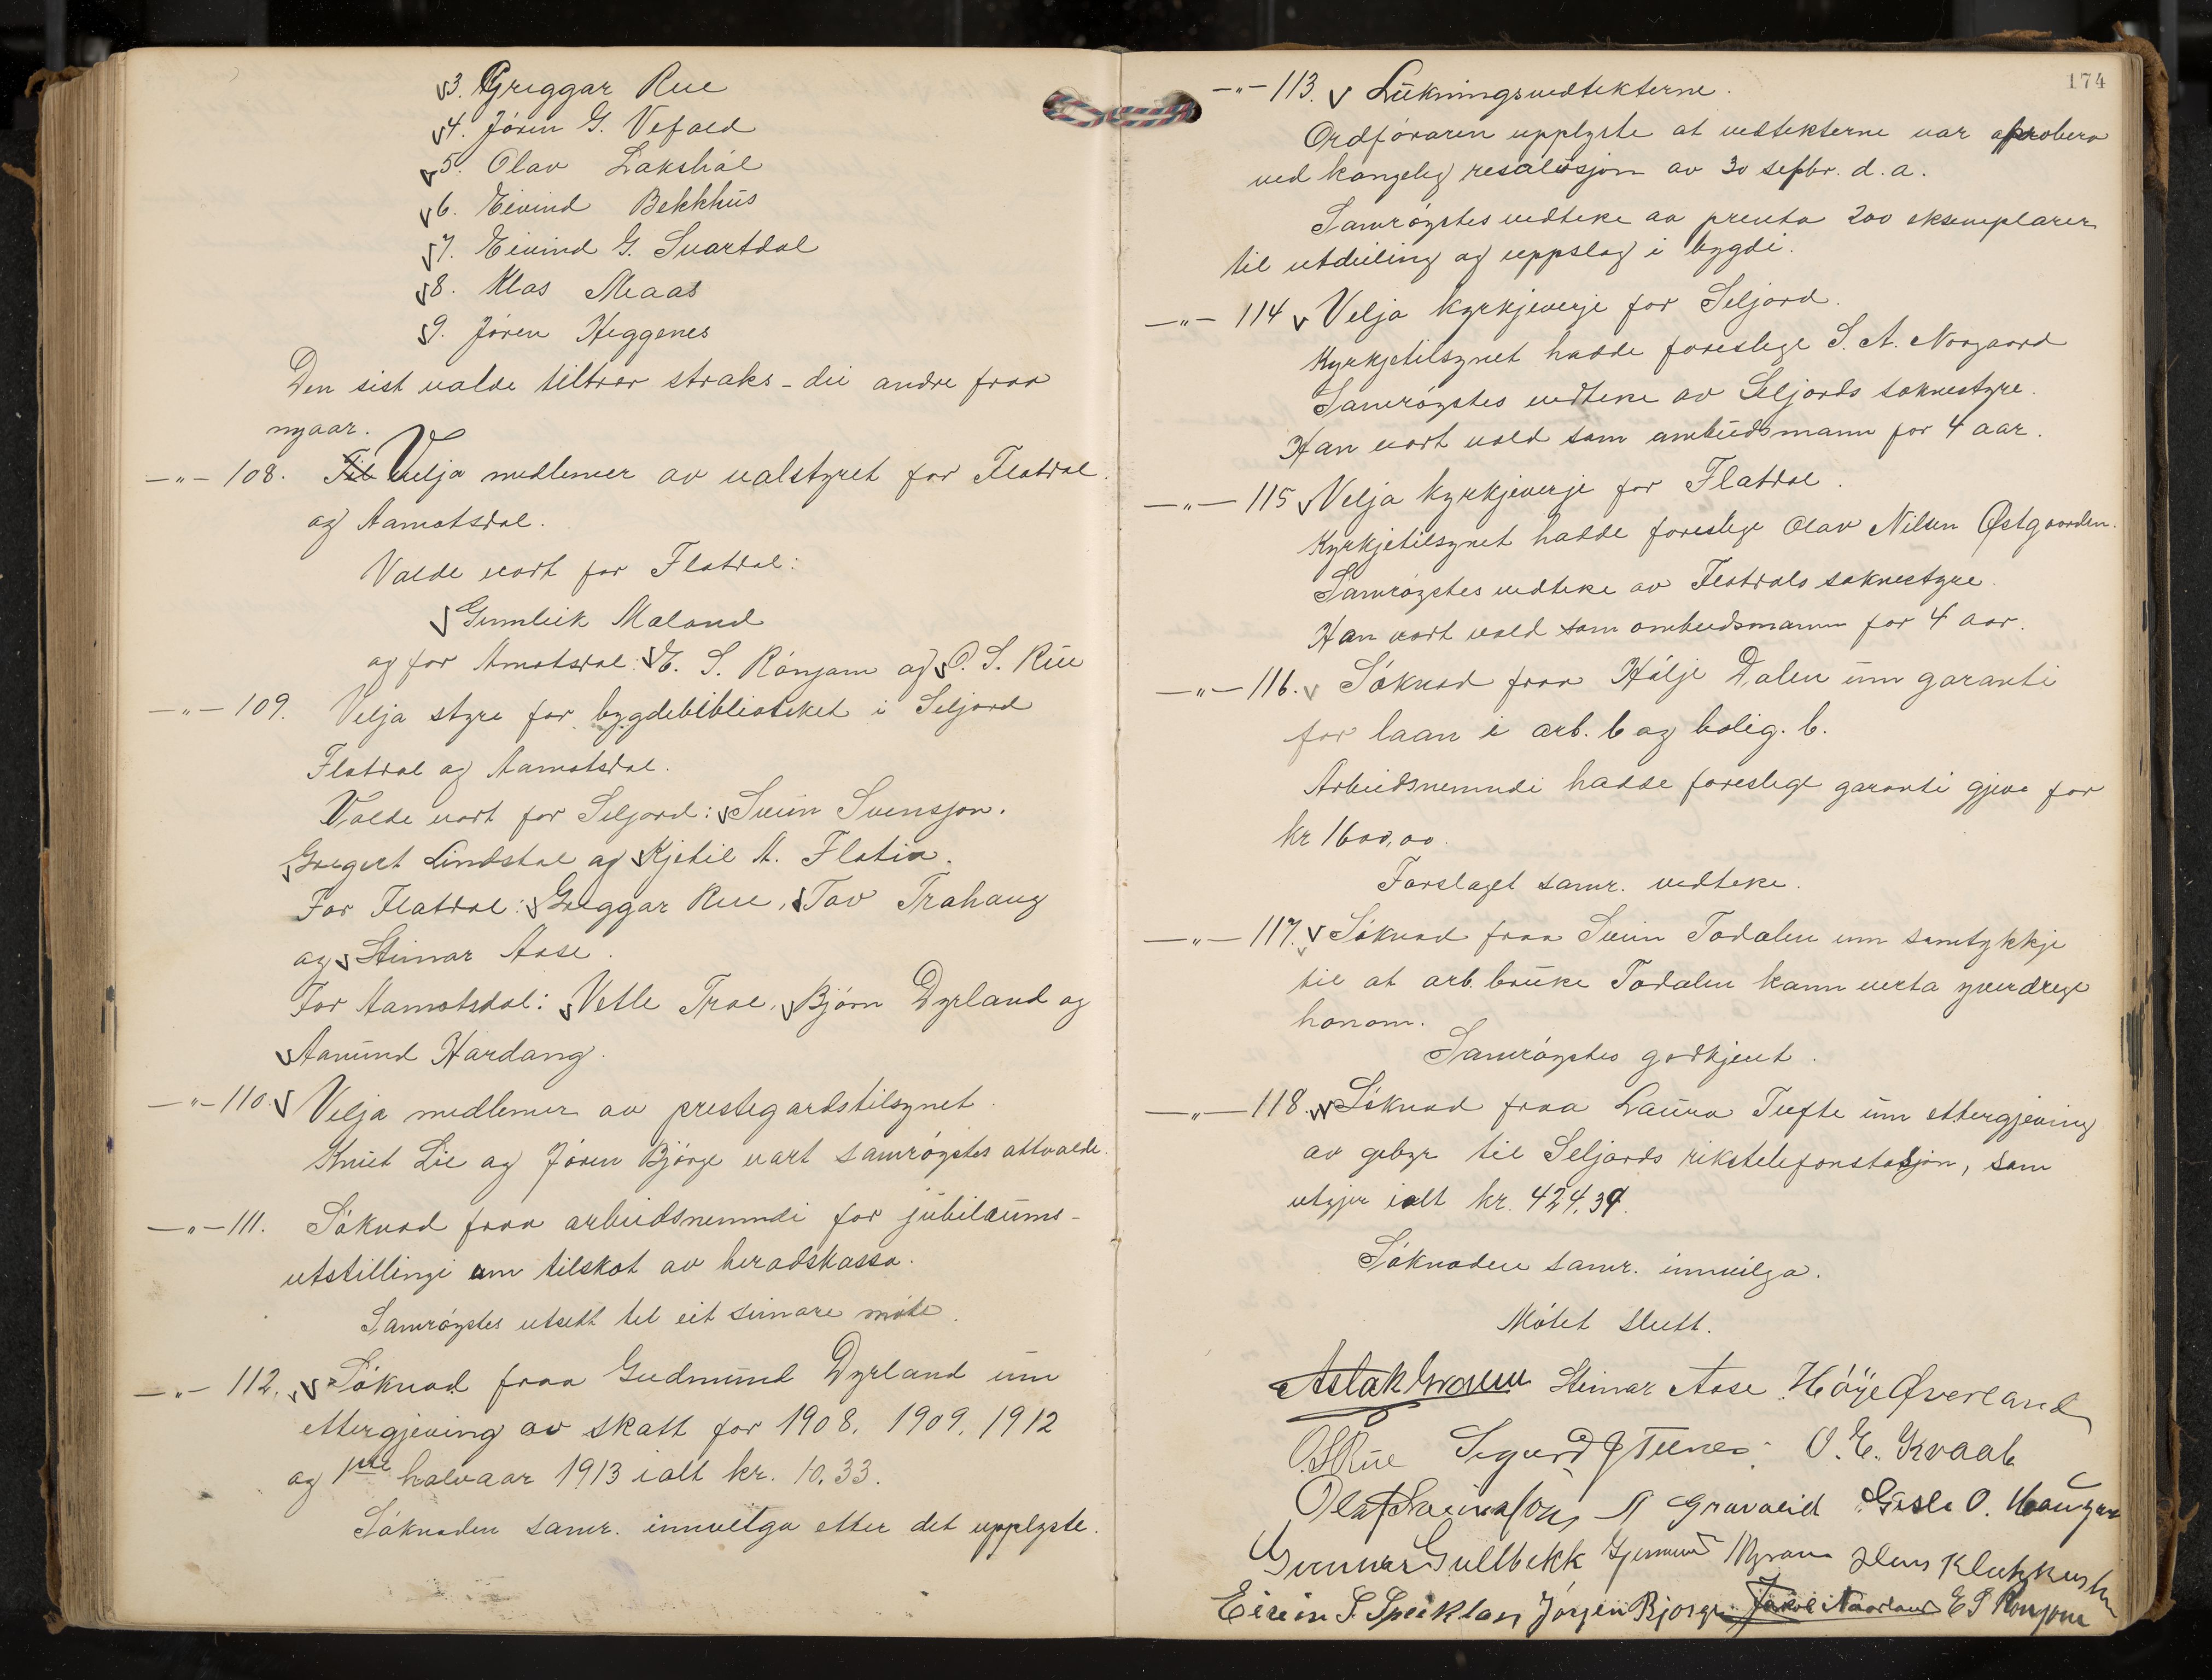 3. Greggar Rue
4. Jören G. Vefald
5. Olav Lakshól
6. Eivind Bekkhus
7. Eivind G. Svartdal
8. Klas Maas
9. Jören Heggenes
Den sist valde tiltrør straks - dei andre fraa
nyaar.
—"— 108. Til Velja medlemer av valstyret for Flatdal
og Aamotsdal.
Valde vart for Flatdal:
Gunleik Maland
og for Amotsdal: E. S. Rónjom og O. S. Rue
—"— 109. Velja styre for bygdebiblioteket i Seljord
Flatdal og Aamotsdal.
Valde vart for Seljord: Svein Svensson.
Gregert Lindstøl og Kjetil A. Flatin.
For Flatdal: Greggar Rue, Tov Trahaug
og Steinar Aase.
For Aamotsdal: Vetle Trae, Bjórn Dyrland og
Aamund Hardang.
—"— 110. Velja medlemer av prestegardstilsynet.
Knut Lie og Jören Bjórge vart samróystes attvalde.
—"— 111. Sóknad fraa arbeidsnemndi for jubilæums-
utstillingi um tilskot av heradskassa.
Samróystes utsett til eit seinare móte.
—"— 112. Sóknad fraa Gudmund Dyrland um
ettergjeving av skatt for 1908, 1909, 1912
og 1ste halvaar 1913 ialt kr. 10,33.
Sóknaden samr. innvilga etter det upplyste.
174
—"— 113. Likningsvedtekterne.
Ordfóraren upplyste at vedtekterne var aprobera
ved kongeleg resolusjon av 30 septbr. d.a.
Samróystes vedteke aa prenta 200 eksemplarer
til utdeiling og uppslag i bygdi.
—"— 114 Velja kyrkjeverje for Seljord.
Kyrkjetilsynet hadde foreslege S. A. Norgaard
Samróystes vedteke av Seljords soknestyre.
Han vart vald som ombudsmann for 4 aar.
—"— 115 Velja kyrkjeverje for Flatdal.
Kyrkjetilsynet hadde foreslege Olav Nilsen Østgaarden.
Samróystes vedteke av Flatdals soknestyre.
Han vart vald som ombudsmann for 4 aar.
—"— 116. Sóknad fraa Hólje Dalen um garanti
for laan i arb. b og bolig. b.
Arbeidsnemndi hadde foreslege garanti gjeve for
kr 1600,00.
Forslaget samr. vedteke.
—"— 117. Sóknad fraa Svein Todalen um samtykkje
til at arb. bruke Todalen kann verta yverdrege
honom.
Samróystes godkjent.
—"— 118. Sóknad fraa Laura Tufte um ettergjeving
av gebyr til Seljords rikstelefonstasjon, som
utgjer ialt kr. 424,34.
Sóknaden samr. innvilga.
Mótet slutt.
Aslak Steinar Aase Höye Øverland
O.S Rue Sigurd O. E. Kvaale
Olaf Sveinsson Gravalid Gisle O. Haugan
Gunnar Gullbekk Klukken
S. Jörgen Bjorge E S Ronjom